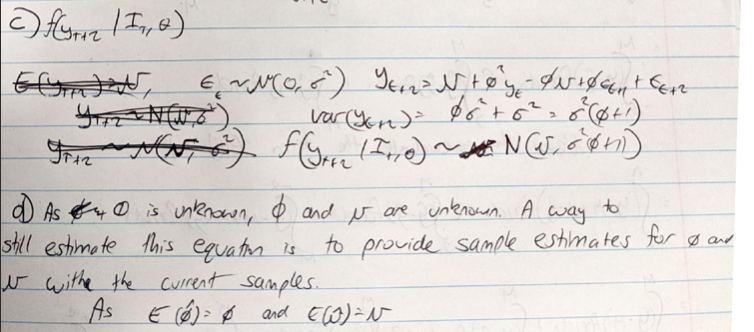 c) f(y_{T+2} | I_T, θ)
E(y_{T+2}) = N, ε_t ~ N(0, σ²) y_{t+2} = N + φ²y_t - φN + φε_{t+1} + ε_{t+2}
y_{T+2} ~ N(N, σ²) var(y_{t+2}) = φσ² + σ² = σ²(φ+1)
y_{T+2} ~ N(N, σ²) f(y_{T+2} | I_T, θ) ~ N(N, σ²(φ+1))
d) As θ is unknown, φ and N are unknown. A way to
still estimate this equation is to provide sample estimates for φ and
N withe the current samples.
As E(φ̂) = φ and E(ν̂) = N